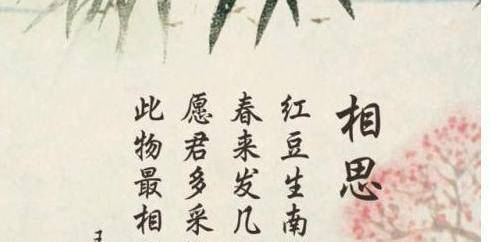 相思
红豆生南
春来发几
愿君多采
此物最相
王